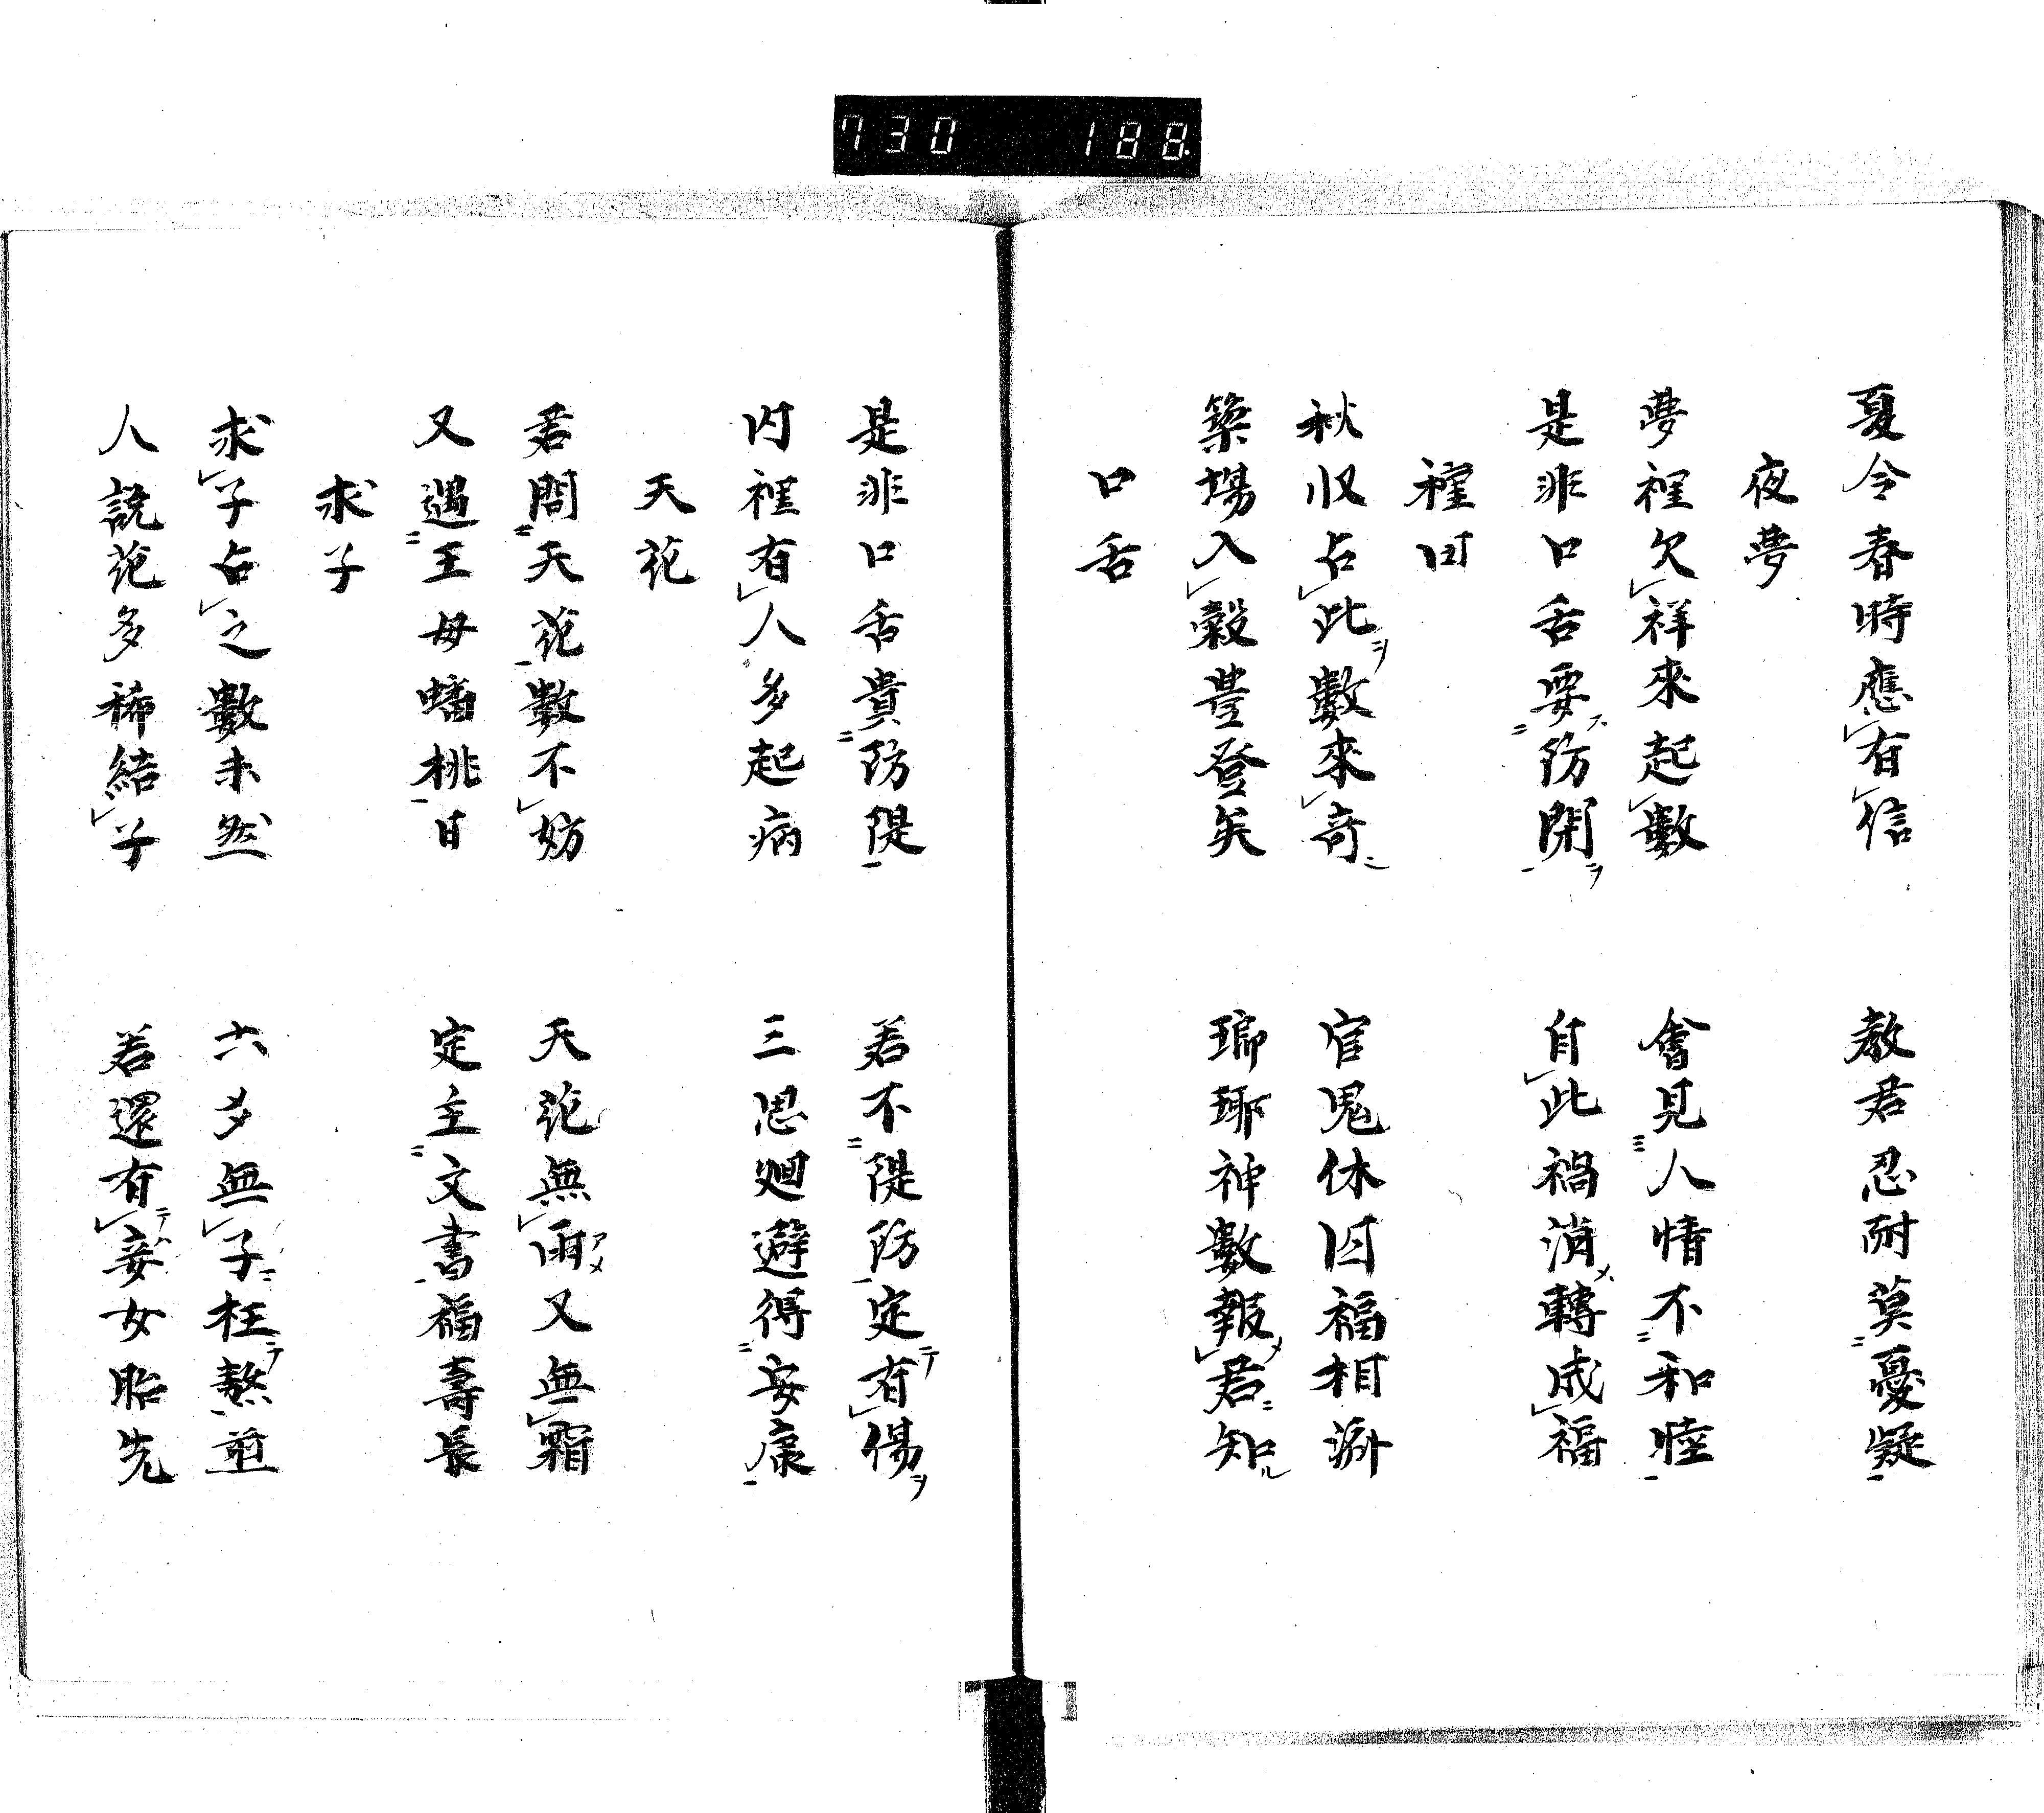 730 188
夏令春時應有信 教君忍耐莫憂疑
夜夢
夢裡欠祥來起數 會見人情不和睦
是非口舌要防閑 自此禍消轉成福
種田
秋収占此數來奇 官鬼休囚福相
築場入穀豊登矣 瑯琊神數報君知
口舌
是非口舌貴防隄 若不隄防定有傷
内裡有人多起病 三思廻避得安康
天花
君問天花數不妨 天花無雨又無霜
又遇王母蟠桃日 定主文書福壽長
求子
求子占之數未然 六夕無子枉熬煎
人説花多稀結子 若還有妾女胎先